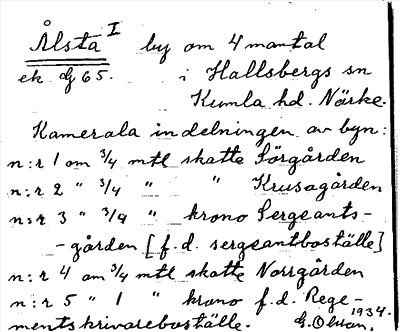 Ålsta I by om 4 mantal
ek bl 65. i Hallsbergs sn
Kumla hd. Närke.
Kamerala indelningen av byn:
n:r 1 om 3/4 mtl skatte Sörgården
n:r 2 " 3/4 " " Krusagården
n:r 3 " 3/4 " krono Sergeants-
-gården [f.d. sergeantboställe]
n:r 4 om 3/4 mtl skatte Norrgården
n:r 5 " 1 " krono f.d. Rege-
mentskrivareboställe. G. Olson, 1934.